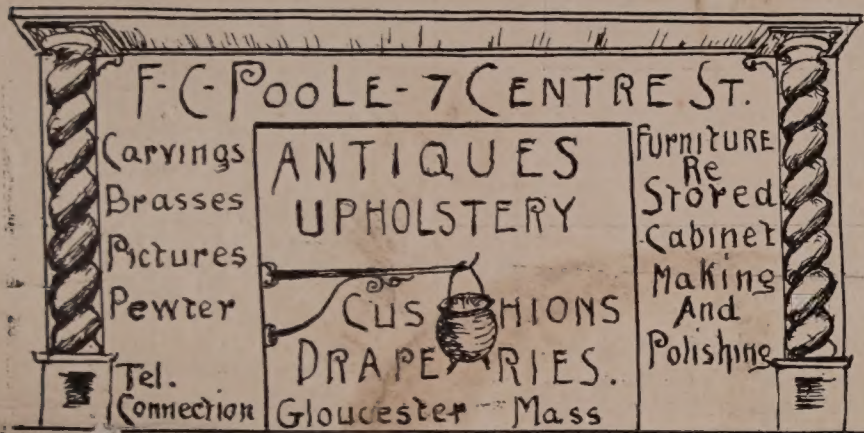 F-C-POOLE-7 CENTRE ST.
Carvings
Brasses
Pictures
Pewter
Tel.
Connection
ANTIQUES
UPHOLSTERY
CUSHIONS
DRAPERIES.
Gloucester Mass
FURNITURE
Re
Stored
Cabinet
Making
And
Polishing